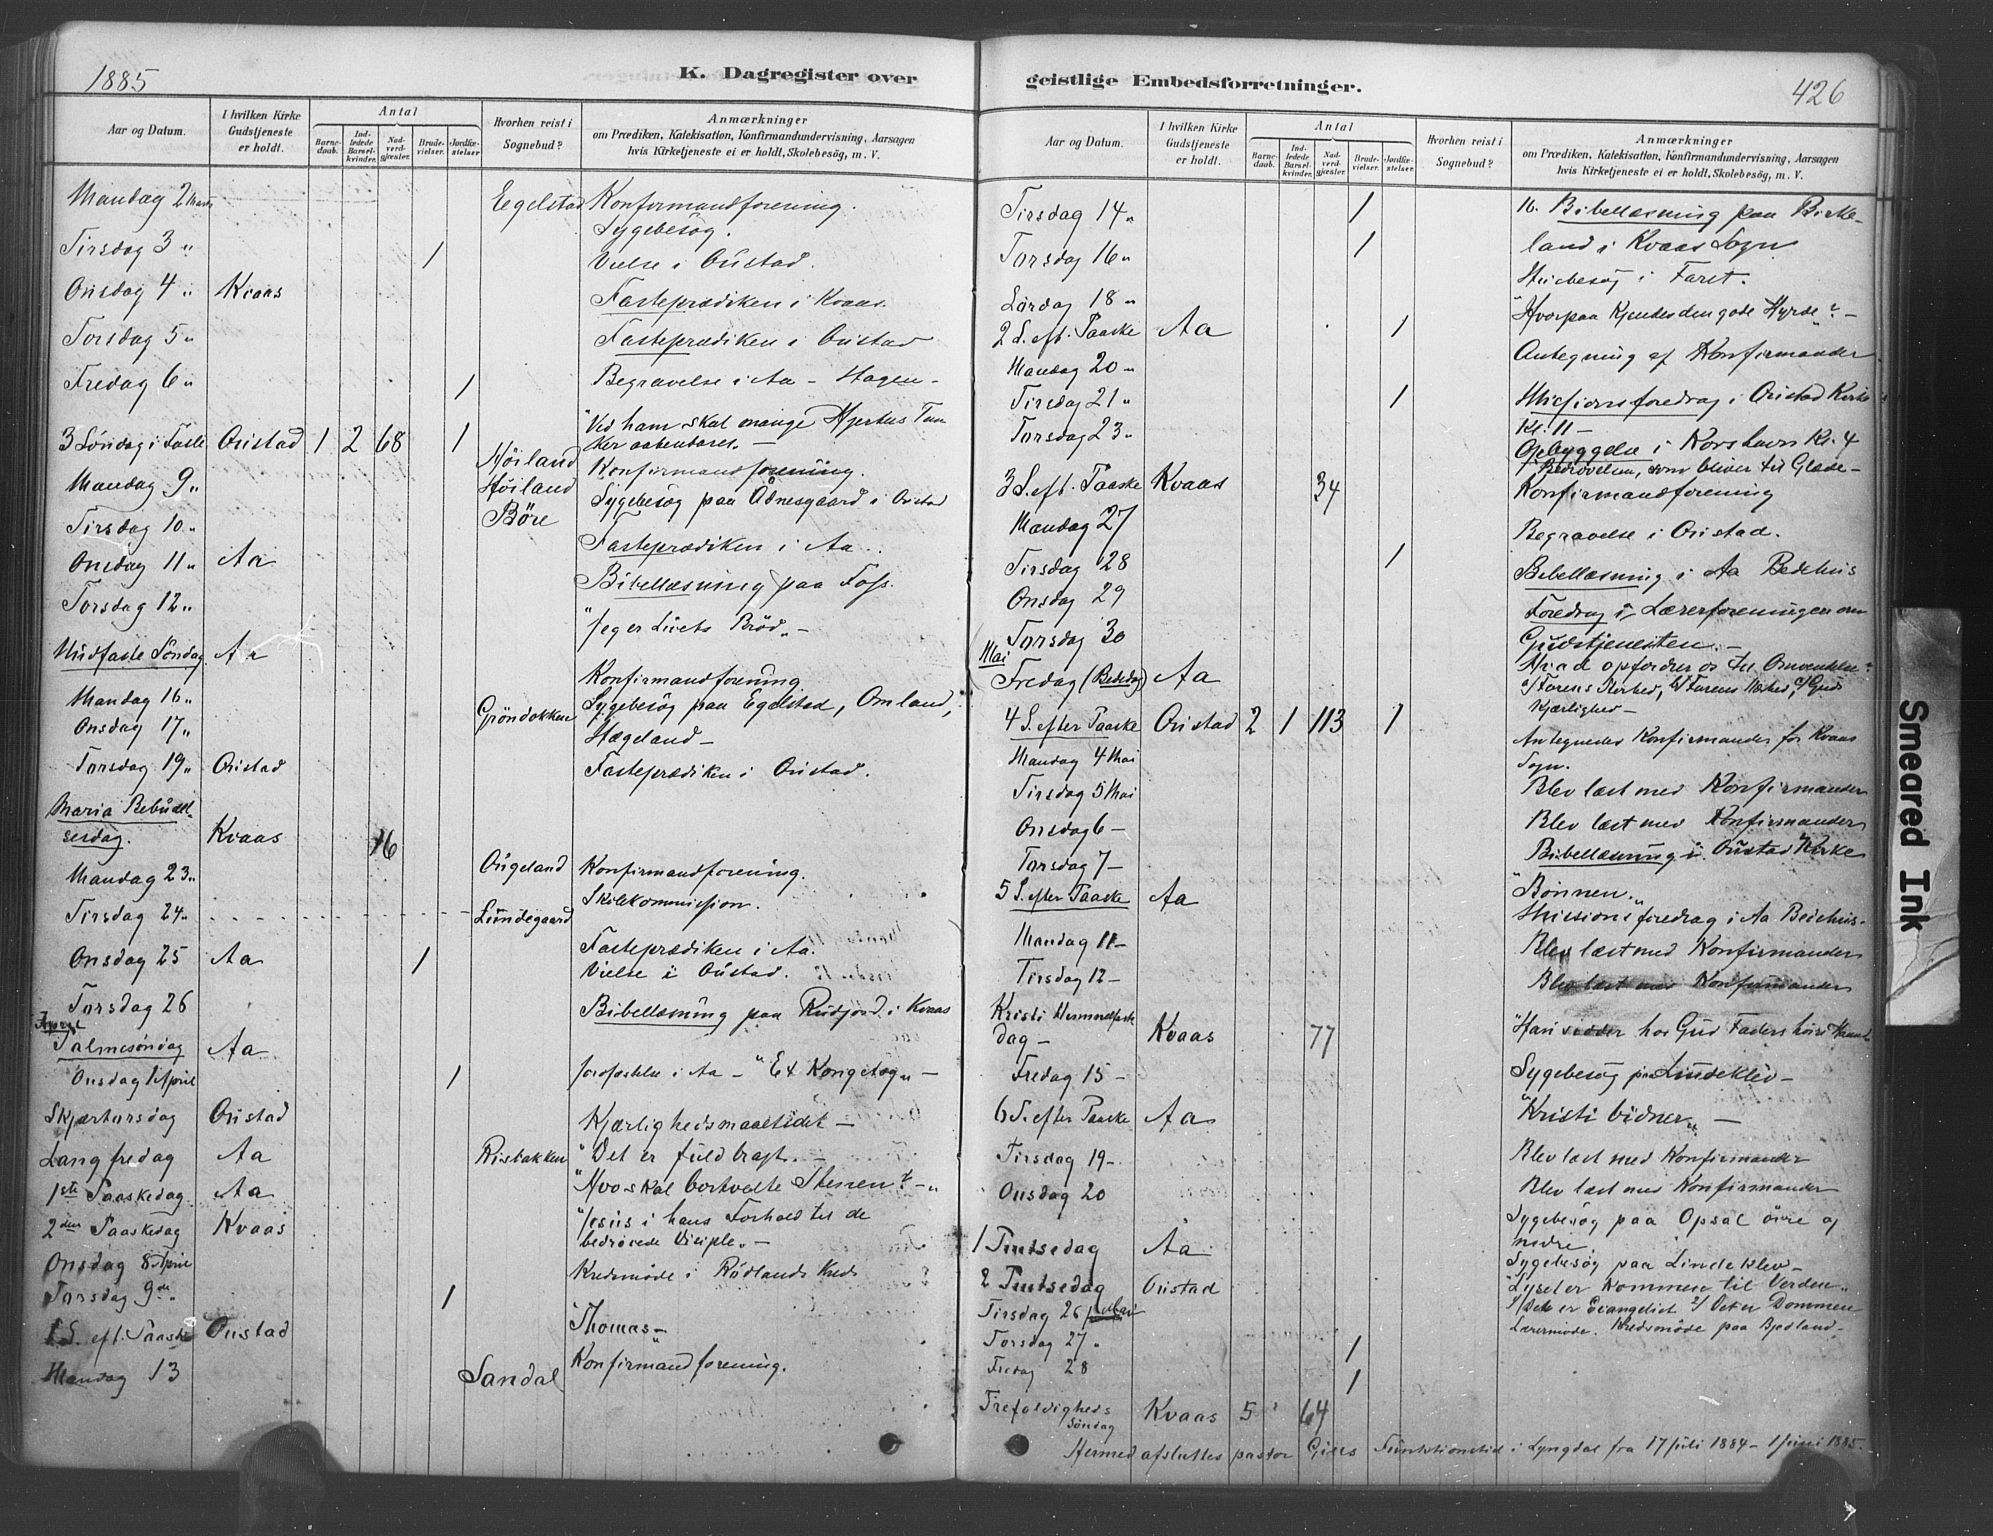 1885
K. Dagregister over
Aar og Datum.
I hvilken Kirke Gudstjeneste er holdt.
Antal
Barnedaab.
Indledede Barselkvinder.
Nadverdgjæster.
Brudevielser.
Jordfæstelser.
Hvorhen reist i Sognebud?
Anmærkninger
om Prædiken, Katekisation, Konfirmandundervisning, Aarsagen
hvis Kirketjeneste ei er holdt, Skolebesög, m. V.
Mandag 2 Marts Egelstad Konfirmandforening.
Sygebesög.
Tirsdag 3 " / Vielse i Oustad.
Onsdag 4 " Kvaas Fasteprædiken i Kvaas.
Torsdag 5 " Fasteprædiken i Oustad
Fredag 6 " / Begravelse i Aa - Hagen -
"Ved ham skal mange Hjerters Tan
3 Söndag i Faste Oustad 1 2 68 / ker aabenbares. -
Höiland Konfirmandforening.
Mandag 9 " Höiland Sygebesög paa Ödnesgaard i Oustad
Tirsdag 10 " Böre
Onsdag 11 " Aa Fasteprædiken i Aa.
Torsdag 12 " Bibellæsning paa Foss.
Midfaste Söndag Aa "Jeg er Livets Bröd" -
Mandag 16 " Konfirmandforening
Onsdag 17 " Gröndokken Sygebesög paa Egelstad, Omland,
Hægeland -
Torsdag 19 " Oustad Fasteprædiken i Oustad.
Maria Bebudel-
sesdag. Kvaas 16
Mandag 23 " Ougeland Konfirmandforening.
Tirsdag 24 " Lundegaard Skolekommission.
Onsdag 25 Aa / Fasteprædiken i Aa.
Vielse i Oustad.
Torsdag 26 Bibellæsning paa Rudjord i Kvaas
Palmesöndag Aa
Onsdag 1 April / Jordfæstelse i Aa - "Et Kongetog" -
Skjærtorsdag Oustad Kjærlighedsmaaltidet -
Langfredag Aa Risbakken "Det er fuldbragt. -
1ste Paaskedag Aa "Hvo skal bortvelte Stenen? - "
2den Paaskedag Kvaas "Jesus i hans Forhold til de
bedrövede Disiple" -
Onsdag 8 April Kredsmöde i Rödlands Kreds
Torsdag 9de " /
1 S. eft. Paaske Oustad "Thomas" -
Mandag 13 Sandal Konfirmandforening.
geistlige Embedsforretninger.
426
Aar og Datum.
I hvilken Kirke Gudstjeneste er holdt.
Antal
Barnedaab.
Indledede Barselkvinder.
Nadverdgjæster.
Brudevielser.
Jordfæstelser.
Hvorhen reist i Sognebud?
Anmærkninger
om Prædiken, Katekisation, Konfirmandundervisning, Aarsagen
hvis Kirketjeneste ei er holdt, Skolebesög, m. V.
Tirsdag 14 " / 16. Bibellæsning paa Birke-
Torsdag 16 " / land i Kvaas Sogn
Lördag 18 " Husbesög i Faret.
2 S. eft. Paaske Aa / "Hvorpaa Kjendes den gode Hyrde"? -
Mandag 20 " Antegning af Konfirmander
Tirsdag 21 " / Missionsforedrag i Oustad Kirke
Torsdag 23 " Kl. 11 -
Opbyggelse i Korshavn Kl. 4
"Bedrövelsen, som bliver til Glæde -
3 S. eft. Paaske Kvaas 34 Konfirmandforening
Mandag 27 Begravelse i Oustad.
Tirsdag 28 / Bibellæsning i Aa Bedehus
Onsdag 29 Foredrag i Lærerforeningen om
Torsdag 30 Gudstjenesten -
Mai
Fredag (Bededag) Aa Hvad opfordrer os til Omvendelse?
a/ Farens Storhed, b/ Farens Nærhed, c/ Guds
Kjærlighed -
4 S. efter Paaske Oustad 2 1 113 /
Mandag 4 Mai Antegnedes Konfirmander for Kvaas
Sogn.
Tirsdag 5 Mai Blev læst med Konfirmander
Onsdag 6 - Blev læst med Konfirmander
Torsdag 7 - Bibellæsning i Oustad Kirke
5 S. efter Paaske Aa "Bönnen"
Missionsforedrag i Aa Bedehus -
Mandag 11 - Blev læst med Konfirmander
Tirsdag 12 - Blev læst med Konfirmander
Kristi Himmelfarts
dag - Kvaas 77 "Han sidder hos Gud Faders höire Haand
Fredag 15 - Sygebesög paa Lindeklev -
6 S. efter Paaske Aa "Kristi Vidner" -
Tirsdag 19 - Blev læst med Konfirmander
Onsdag 20 Blev læst med Konfirmander
Sygebesög paa Opsal övre og
nedre.
1 Pintsedag Aa Sygebesög paa Lindeklev -
2 Pintsedag Oustad "Lyset er kommen til Verden"
Tirsdag 26 Mai 1/ Dette er Evangeliet 2/ Det er Dommen
Torsdag 27 " / Lærermöde. Kredsmöde paa Bjedland -
Fredag 28 /
Trefoldigheds
Söndag Kvaas 5 64
Hermed afsluttes pastor Funktionstid i Lyngdal fra 17 Juli 1884 - 1 Juni 1885.
Smeared Ink